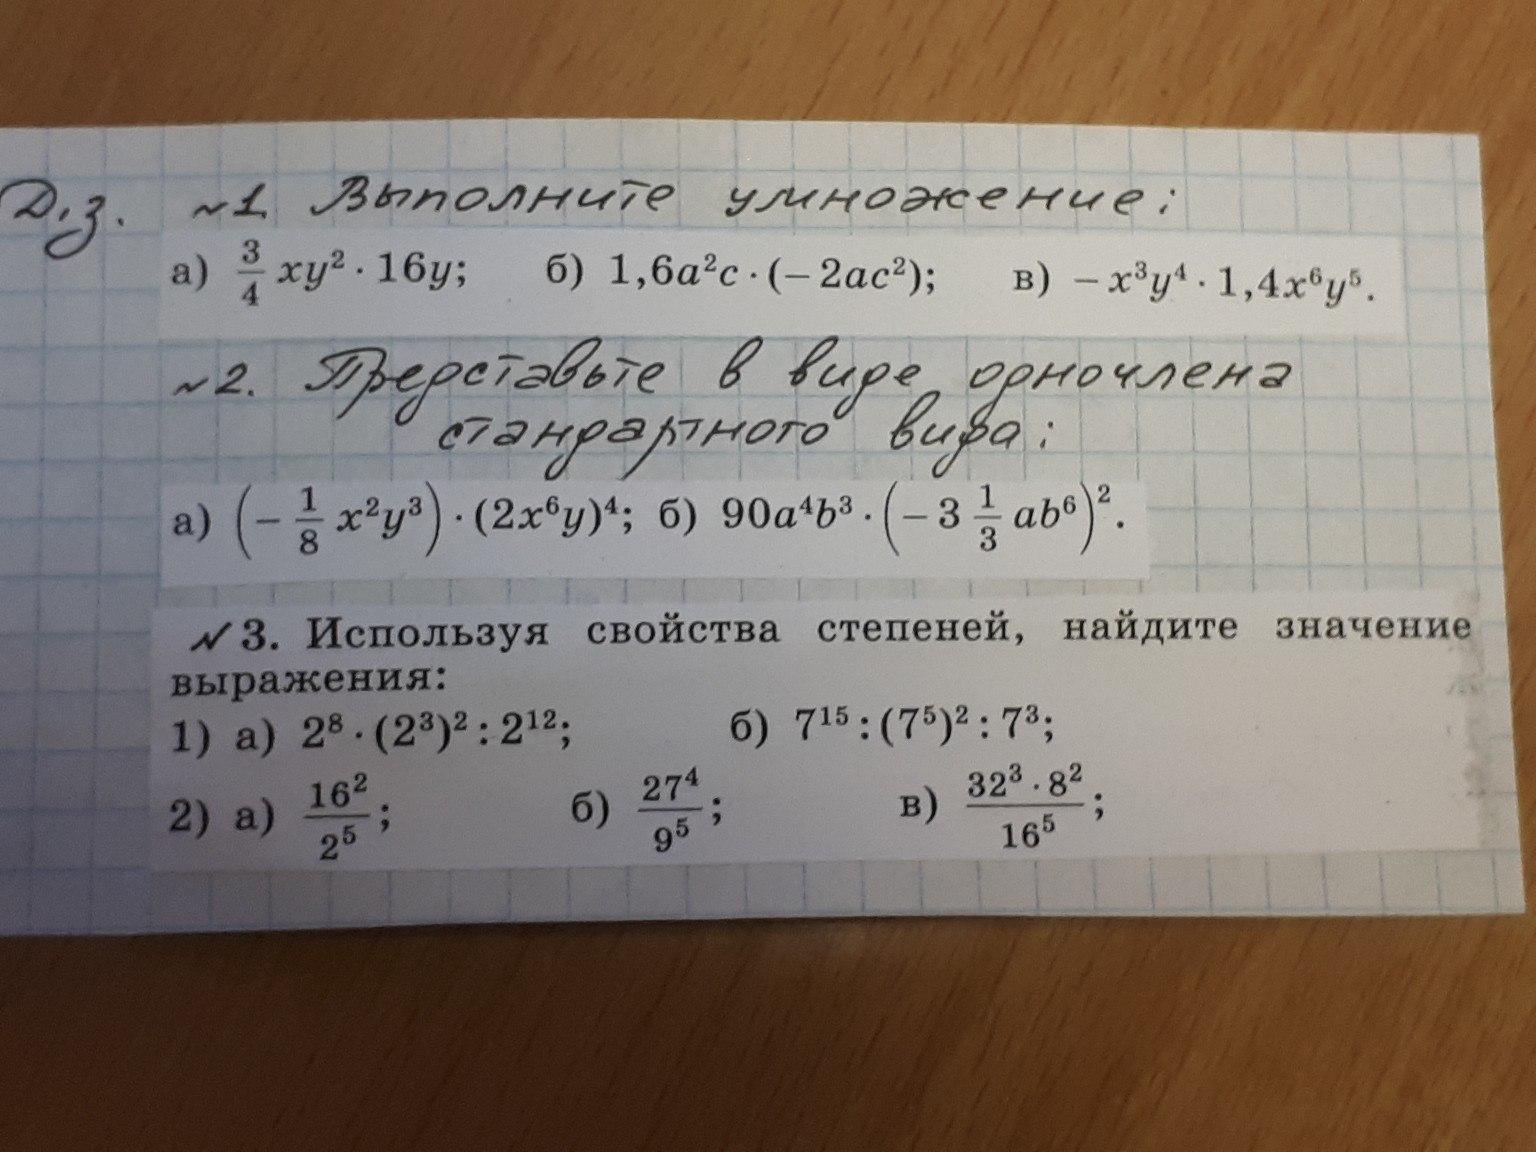 Д.з. №1. Выполните умножение:
а) 3/4 xy² · 16y; б) 1,6a²c · (− 2ac²); в) − x³y⁴ · 1,4x⁶y⁵.
№2. Представьте в виде одночлена
стандартного вида:
а) (− 1/8 x²y³) · (2x⁶y)⁴; б) 90a⁴b³ · (− 3 1/3 ab⁶)².
№ 3. Используя свойства степеней, найдите значение
выражения:
1) а) 2⁸ · (2³)² : 2¹²; б) 7¹⁵ : (7⁵)² : 7³;
2) а) 16²/2⁵; б) 27⁴/9⁵; в) 32³ · 8²/16⁵;